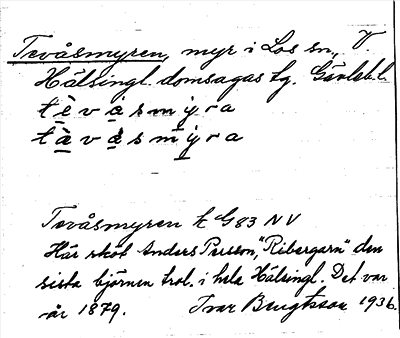 Tevåsmyren, myr i Los sn., V.
Hälsingl. domsagas tg. Gävleb.l.
tèvåsmýra
tàvåsmýra
Tevåsmyren k G83 NV
Här sköt Anders Persson, "Ribergarn" den
sista björnen trol. i hela Hälsingl. Det var
år 1879. Ivar Bengtsson 1936.